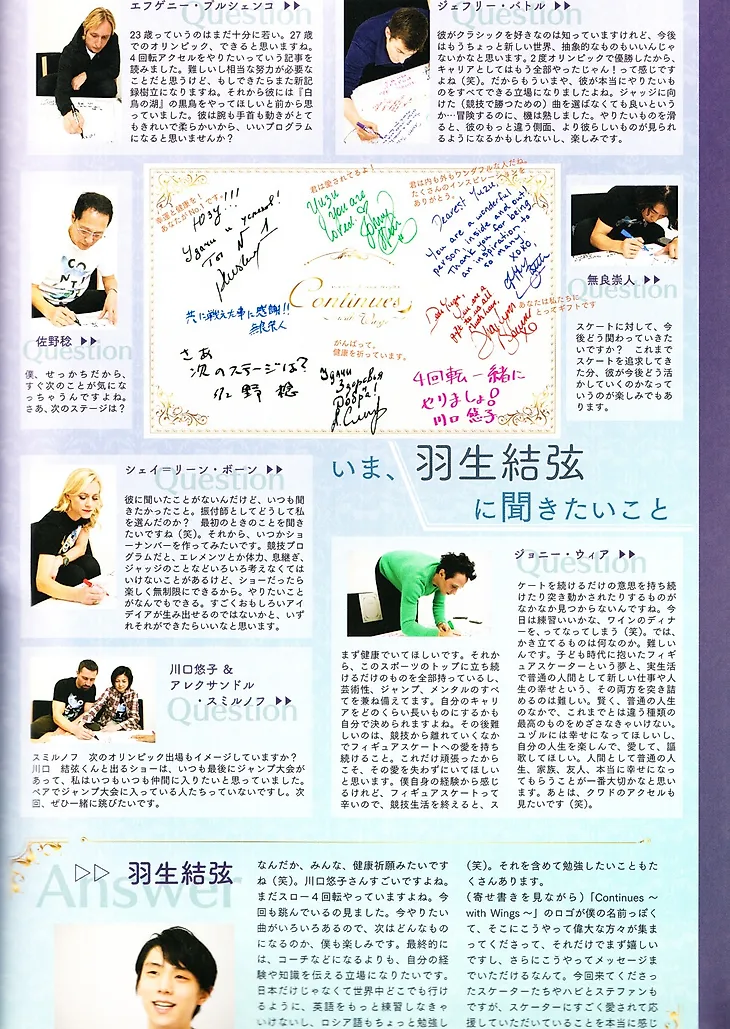 Question
エフゲニー・プルシェンコ ▷▷
23歳っていうのはまだ十分に若い。27歳
でのオリンピック、できると思いますね。
4回転アクセルをやりたいっていう記事を
読みました。難しいし相当な努力が必要な
ことだと思うけど、もしできたらまた新記
録樹立になりますね。それから彼には『白
鳥の湖』の黒鳥をやってほしいと前から思
っていました。彼は腕も手首も動きがとて
もきれいで柔らかいから、いいプログラム
になると思いませんか？
Question
ジェフリー・バトル ▷▷
彼がクラシックを好きなのは知っていますけれど、今後
はもうちょっと新しい世界、抽象的なものもいいんじゃ
ないかなと思います。2度オリンピックで優勝したから、
キャリアとしてはもう全部やったじゃん！って感じです
よね（笑）。だからもういまや、彼が本当にやりたいも
のをすべてできる立場になりましたよね。ジャッジに向
けた（競技で勝つための）曲を選ばなくても良いという
か…冒険するのに、機は熟しました。やりたいものを滑
ると、彼のもっと違う側面、より彼らしいものが見られ
るようになるかもしれないし、楽しみです。
幸運と健康を！
あなたがNo.1です。
Юзу!!!
Удачи и успехов!
Ты № 1
君は愛されてるよ！
Yuzu
You are
loved.
君は内も外もワンダフルな人だね。
たくさんのインスピレーションを
ありがとう。
Dearest Yuzu,
You are a wonderful
person, inside and out!
Thank you for being
an inspiration to
so many!
xoxo,
Continues
with Wings
共に戦えた事に感謝!!
無良崇人
あなたは私たちに
とってギフトです
Dear Yuzu,
You are a
gift to us all
Shae-Lynn
Bourne
xo
さあ
次のステージは？
佐野 稔
がんばって。
健康を祈っています。
Удачи
Здоровья
и
Добра!
4回転 一緒に
やりましょ！
川口 悠子
佐野稔 ▷▷
Question
僕、せっかちだから、
すぐ次のことが気にな
っちゃうんですよね。
さあ、次のステージは？
無良崇人 ▷▷
Question
スケートに対して、今
後どう関わっていきた
いですか？　これまで
スケートを追求してき
た分、彼が今後どう活
かしていくのかなって
いうのが楽しみでもあ
ります。
いま、羽生結弦
に聞きたいこと
シェイ＝リーン・ボーン ▷▷
Question
彼に聞いたことがないんだけど、いつも聞
きたかったこと。振付師としてどうして私
を選んだのか？　最初のときのことを聞き
たいですね（笑）。それから、いつかショ
ーナンバーを作ってみたいです。競技プロ
グラムだと、エレメンツとか体力、息継ぎ、
ジャッジのことなどいろいろ考えなくては
いけないことがあるけど、ショーだったら
楽しく無制限にできるから。やりたいこと
がなんでもできる。すごくおもしろいアイ
デイアが生み出せるのではないかと、いず
れそれができたらいいなと思います。
川口悠子 &
アレクサンドル
・スミルノフ ▷▷
Question
スミルノフ　次のオリンピック出場もイメージしていますか？
川口　結弦くんと出るショーは、いつも最後にジャンプ大会が
あって、私はいつもいつも仲間に入りたいと思っていました。
ペアでジャンプ大会に入っている人たちっていないですし。次
回、ぜひ一緒に跳びたいです。
ジョニー・ウィア ▷▷
Question
まず健康でいてほしいです。それか
ら、このスポーツのトップに立ち続
けるだけのものを全部持っているし、
芸術性、ジャンプ、メンタルのすべ
てを兼ね備えてます。自分のキャリ
アをどのくらい長いものにするかも
自分で決められますよね。その後難
しいのは、競技から離れていくなか
でフィギュアスケートへの愛を持ち
続けること。これだけ頑張ったから
こそ、その愛を失わずにいてほしい
と思います。僕自身の経験から感じ
るけれど、フィギュアスケートって
辛いので、競技生活を終えると、ス
ケートを続けるだけの意思を持ち続
けたり突き動かされたりするものが
なかなか見つからないんですね。今
日は練習いいかな、ワインのディナ
ーを、ってなってしまう（笑）。では、
かき立てるものは何なのか。難しい
んです。子ども時代に抱いたフィギ
ュアスケーターという夢と、実生活
で普通の人間として新しい仕事や人
生の幸せという、その両方を突き詰
めるのは難しい。賢く、普通の人生
のなかで、これまでとは違う種類の
最高のものをめざさなきゃいけない。
ユヅルには幸せになってほしいし、
自分の人生を楽しんで、愛して、謳
歌してほしい。人間として普通の人
生、家族、友人、本当に幸せになっ
てもらうことが一番大切かなと思い
ます。あとは、クワドのアクセルも
見たいです（笑）。
Answer
▷▷ 羽生結弦
なんだか、みんな、健康祈願みたいです
ね（笑）。川口悠子さんすごいですよね。
まだスロー4回転やっていますよね。今
回も跳んでいるの見ました。今やりたい
曲がいろいろあるので、次はどんなもの
になるのか、僕も楽しみです。最終的に
は、コーチなどになるよりも、自分の経
験や知識を伝える立場になりたいです。
日本だけじゃなくて世界中どこでも行け
るように、英語をもっと練習しなきゃ
いけないし、ロシア語もちょっと勉強し
（笑）。それを含めて勉強したいこともた
くさんあります。
（寄せ書きを見ながら）「Continues ～
with Wings ～」のロゴが僕の名前っぽく
て、そこにこうやって偉大な方々が集ま
ってくださって、それだけでまず嬉しい
ですし、さらにこうやってメッセージま
でいただけるなんて。今回来てくださっ
たスケーターたちやハビとステファンも
ですが、スケーターにすごく愛されて応
援していただいていることを本当に感じ